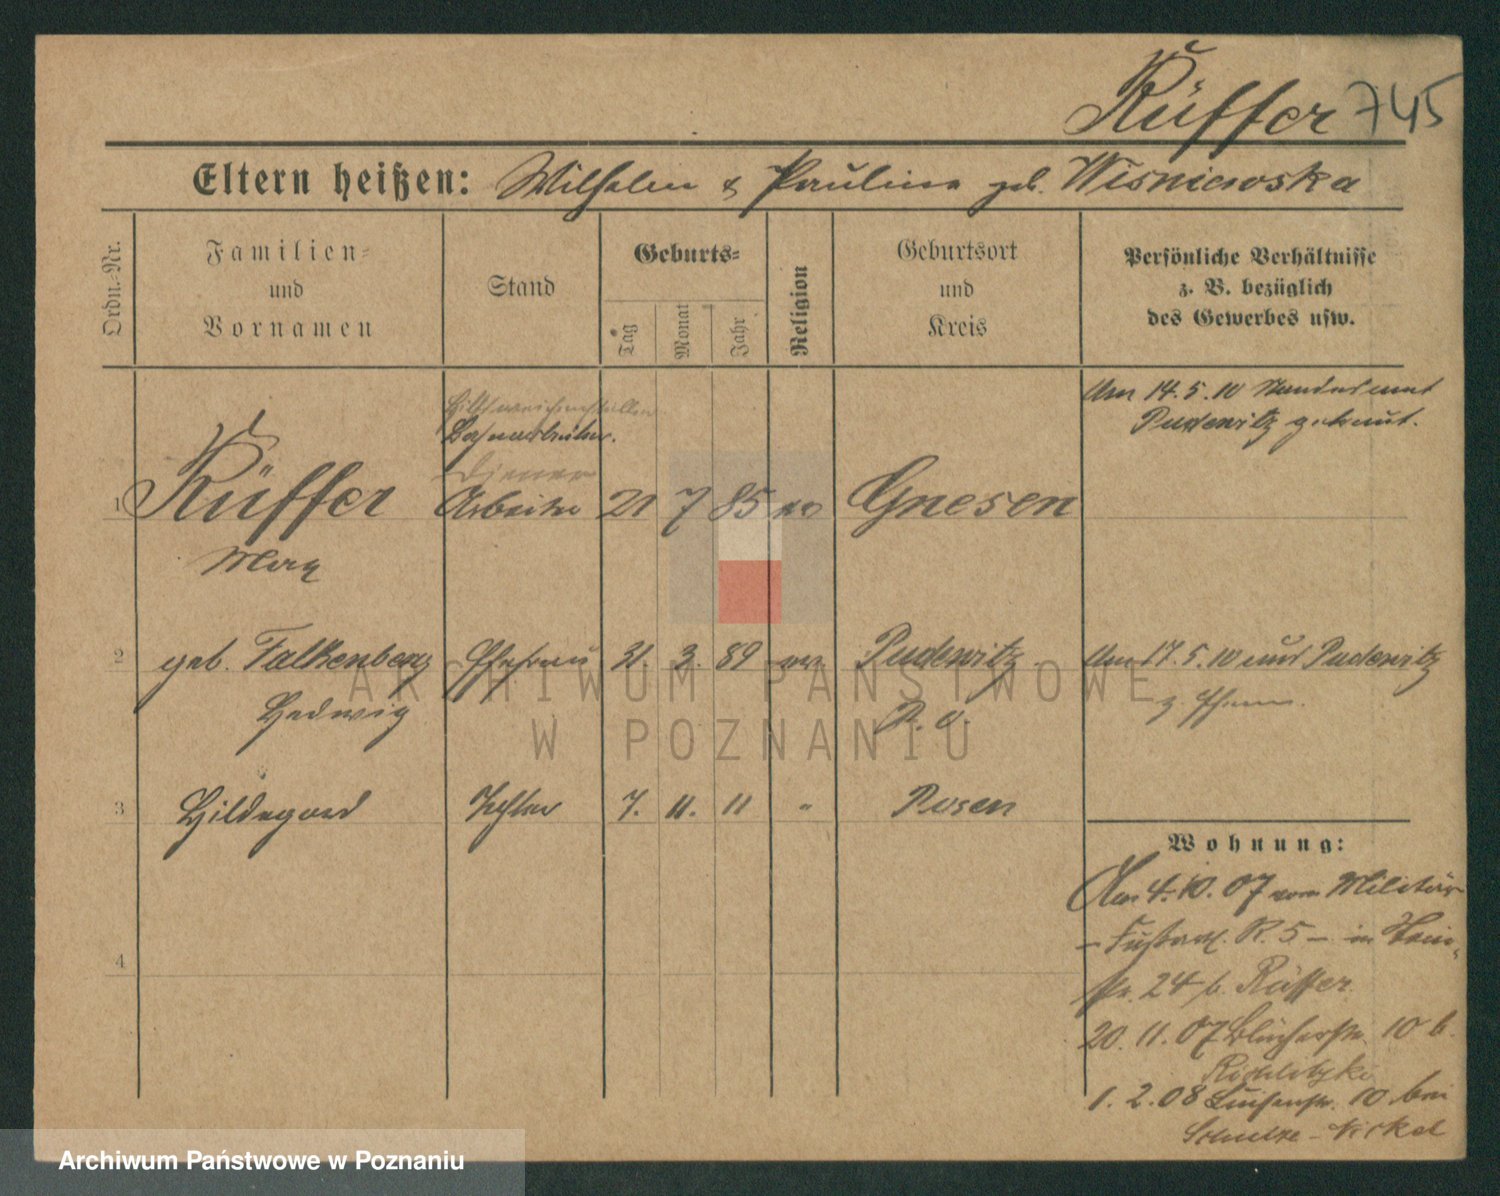 Rüffer 745
Eltern heißen: Wilhelm & Pauline geb. Wisniewska
Ordn.-Nr.
Familien- und Vornamen
Stand
Geburts-
Tag
Monat
Jahr
Religion
Geburtsort und Kreis
Persönliche Verhältnisse
z. B. bezüglich
des Gewerbes usw.
Am 14.5.10 Standesamt
Pudewitz getraut.
Bahnarbeiter.
Diener
1 Rüffer Arbeiter 21 7 85 Gnesen
Max
2 geb. Falkenberg Ehefrau 31. 3. 89 ev. Pudewitz Am 17.5.10 aus Pudewitz
Hedwig P. O. z. Ehem.
3 Hildegard Tochter 7. 11. 11 " Posen
Wohnung:
4
Am 4.10.07 vom Militär
- Fußart. R. 5 - in
str. 24 b. Rüffer
20.11.07 Blücherstr. 10 b.
1.2.08 Luisenstr. 10 bei
Schulze-Nickel
ARCHIWUM PAŃSTWOWE
W POZNANIU
Archiwum Państwowe w Poznaniu